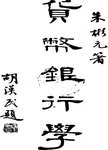 朱彬元著
貨幣銀行學
胡漢民題